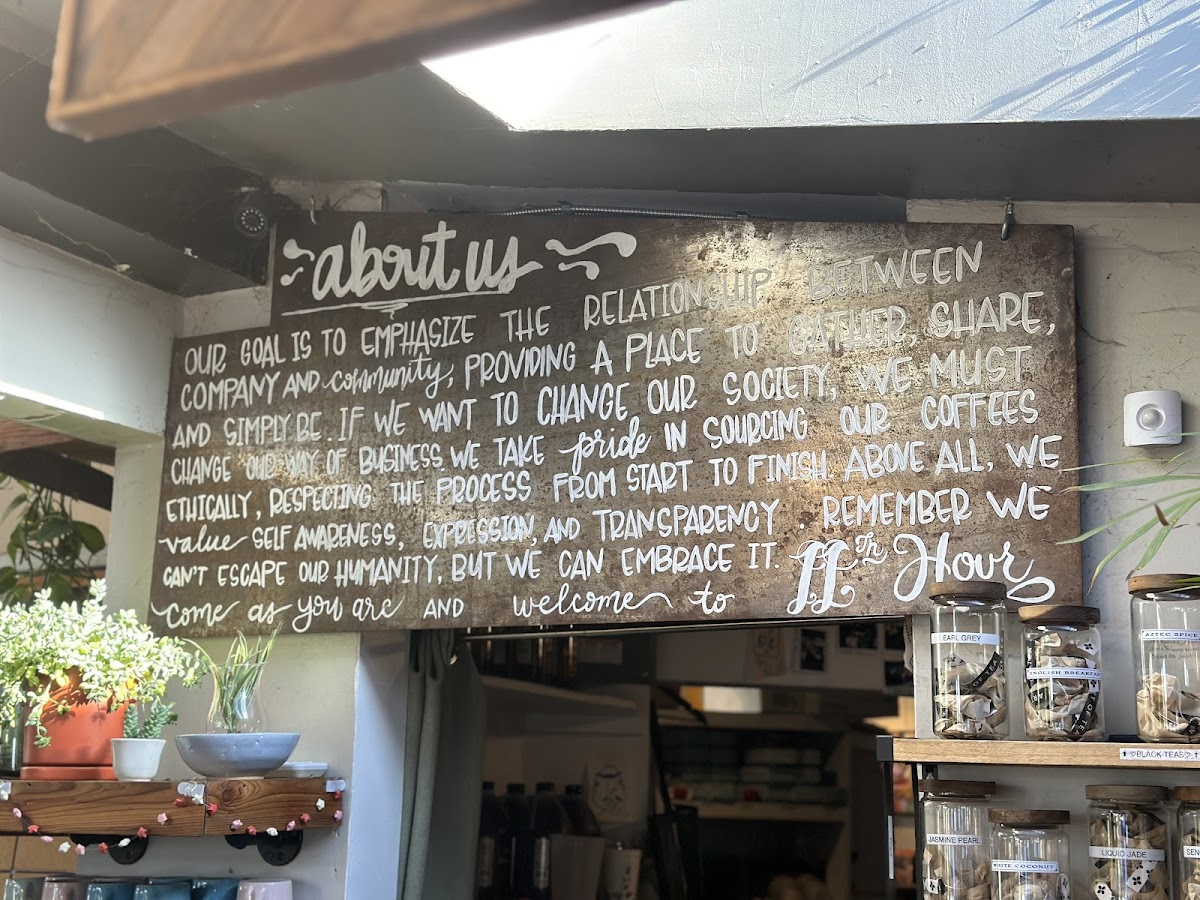 about us
OUR GOAL IS TO EMPHASIZE THE RELATIONSHIP BETWEEN
COMPANY AND community, PROVIDING A PLACE TO GATHER, SHARE,
AND SIMPLY BE. IF WE WANT TO CHANGE OUR SOCIETY, WE MUST
CHANGE OUR WAY OF BUSINESS. WE TAKE pride IN SOURCING OUR COFFEES
ETHICALLY, RESPECTING THE PROCESS FROM START TO FINISH. ABOVE ALL, WE
value SELF AWARENESS, EXPRESSION, AND TRANSPARENCY. REMEMBER WE
CAN'T ESCAPE OUR HUMANITY, BUT WE CAN EMBRACE IT.
come as you are AND welcome to 11th Hour
EARL GREY
ENGLISH BREAKFAST
AZTEC SPICE
BLACK TEAS
JASMINE PEARL
WHITE COCONUT
LIQUID JADE
SEN